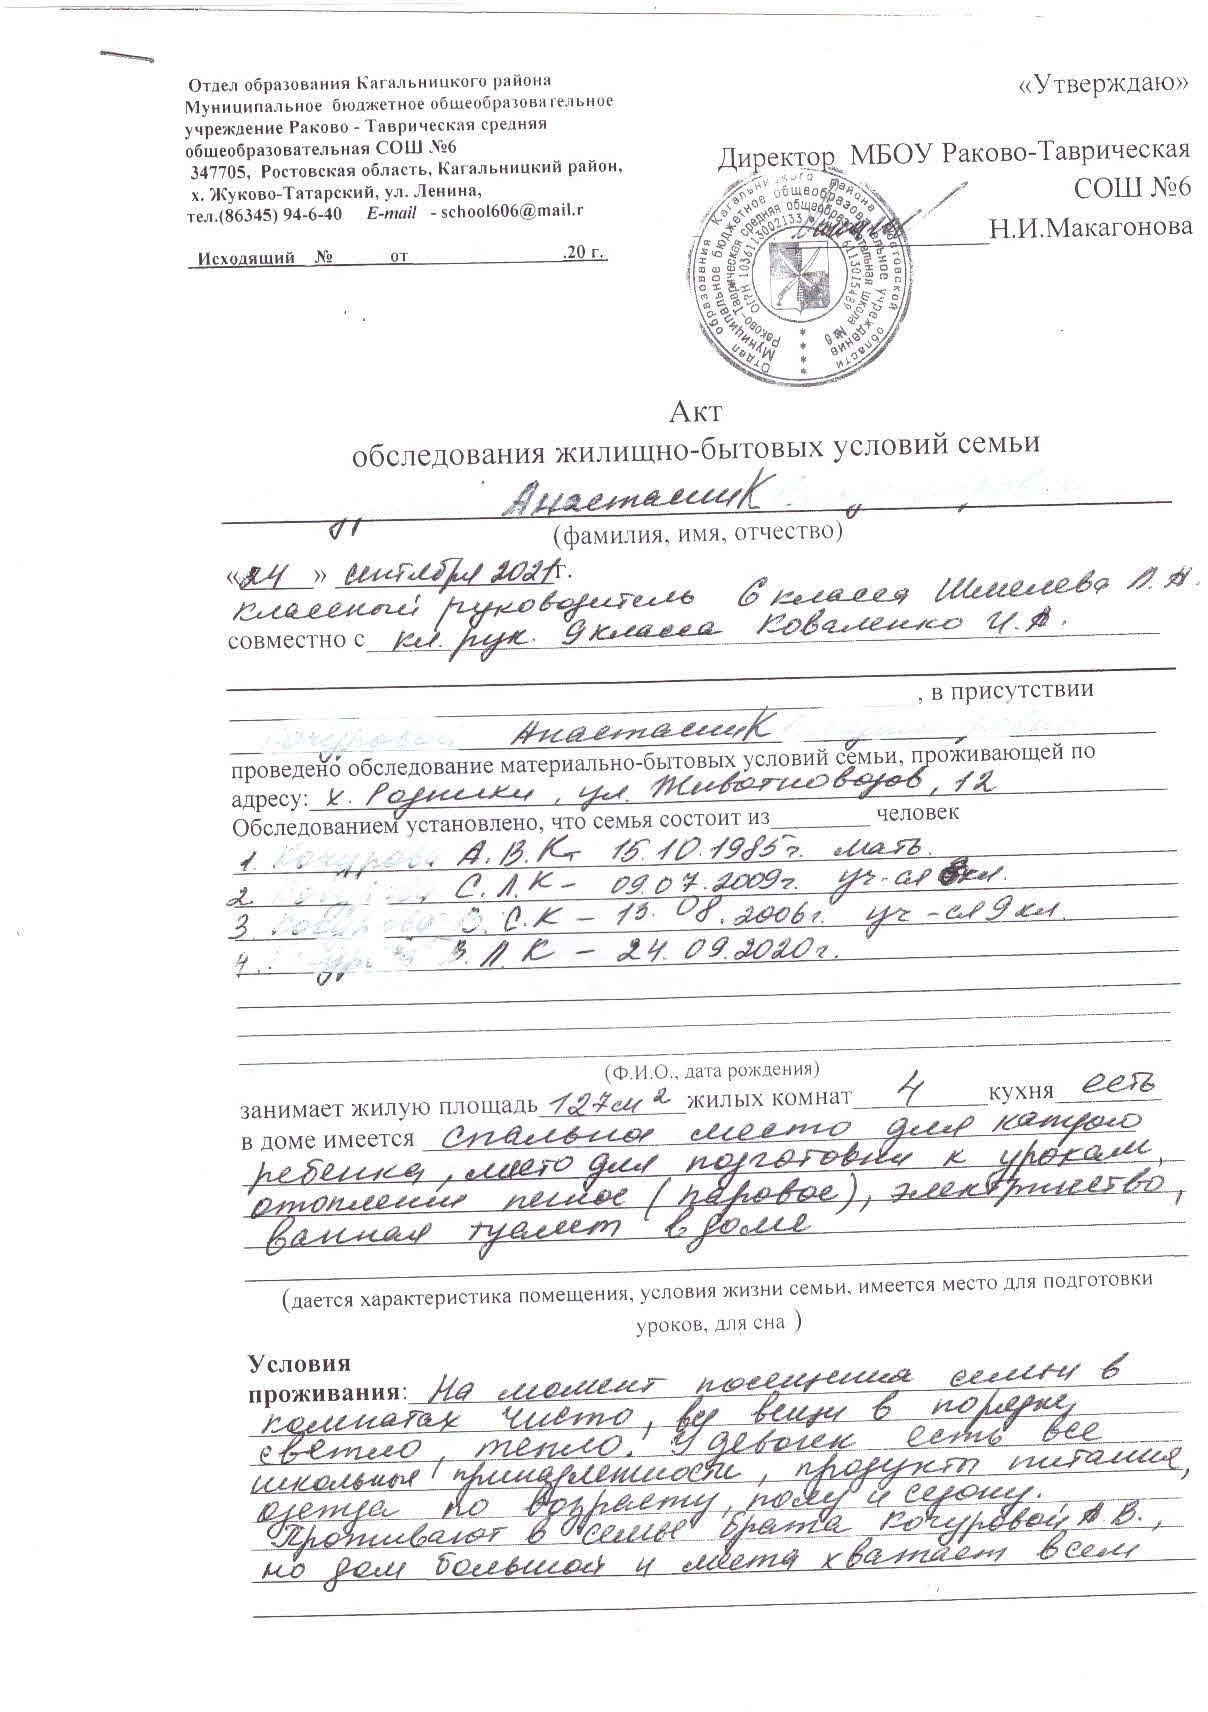 Отдел образования Кагальницкого района
Муниципальное бюджетное общеобразовательное
учреждение Раково - Таврическая средняя
общеобразовательная СОШ №6
347705, Ростовская область, Кагальницкий район,
х. Жуково-Татарский, ул. Ленина,
тел.(86345) 94-6-40 E-mail - school606@mail.r
Исходящий № от .20 г.
«Утверждаю»
Директор МБОУ Раково-Таврическая
СОШ №6
Н.И.Макагонова
Акт
обследования жилищно-бытовых условий семьи
Анастасии К
(фамилия, имя, отчество)
«24» сентября 2021г.
классный руководитель 6 класса Шмелева Л.А.
совместно с кл. рук. 9 класса Коваленко И.А.
, в присутствии
Анастасии К
проведено обследование материально-бытовых условий семьи, проживающей по
адресу: х. Родники, ул. Животноводов, 12
Обследованием установлено, что семья состоит из человек
1. А.В.К- 15.10.1985г. мать.
2. С.Л.К - 09.07.2009г. уч-ся кл.
3. В.С.К - 13.08.2006г. уч-ся 9 кл.
4. З.Л.К - 24.09.2020г.
(Ф.И.О., дата рождения)
занимает жилую площадь 127м2 жилых комнат 4 кухня есть
в доме имеется спальное место для каждого
ребенка, место для подготовки к урокам,
отопление печное (паровое), электричество,
ванная туалет в доме
(дается характеристика помещения, условия жизни семьи, имеется место для подготовки
уроков, для сна )
Условия
проживания: На момент посещения семьи в
комнатах чисто, все вещи в порядке
светло, тепло. У девочек есть все
школьные принадлежности, продукты питания,
одежда по возрасту, полу и сезону.
Проживают в семье брата Кочуровой А.В.,
но дом большой и места хватает всем